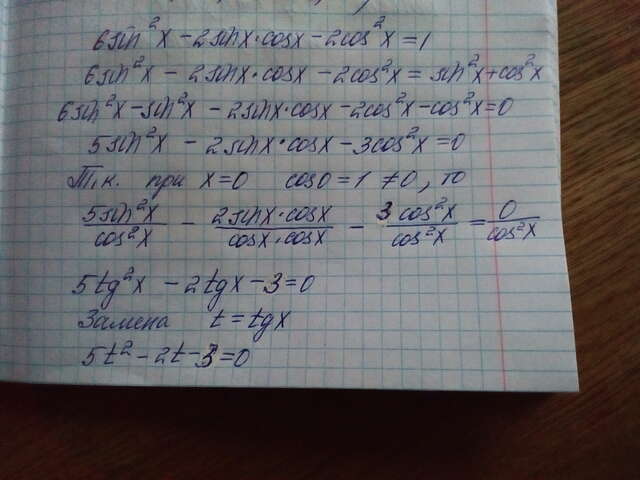 6sin²x - 2sinx·cosx - 2cos²x = 1
6sin²x - 2sinx·cosx - 2cos²x = sin²x + cos²x
6sin²x - sin²x - 2sinx·cosx - 2cos²x - cos²x = 0
5sin²x - 2sinx·cosx - 3cos²x = 0
Т.к. при x=0 cos0 = 1 ≠ 0, то
5sin²x/cos²x - 2sinx·cosx/cosx·cosx - 3cos²x/cos²x = 0/cos²x
5tg²x - 2tgx - 3 = 0
Замена t = tgx
5t² - 2t - 3 = 0